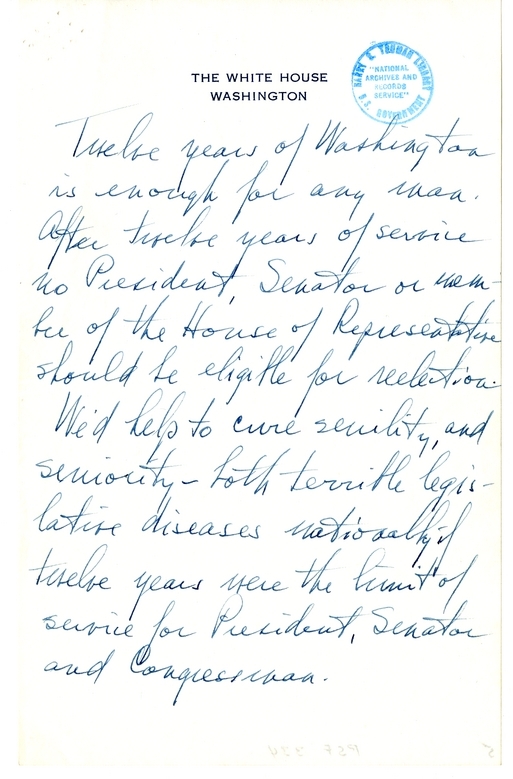 THE WHITE HOUSE
WASHINGTON
HARRY S. TRUMAN LIBRARY
"NATIONAL
ARCHIVES AND
RECORDS
SERVICE"
U.S. GOVERNMENT
Twelve years of Washington
is enough for any man.
After twelve years of service
no President, Senator or mem-
ber of the House of Representative
should be eligible for reelection.
We'd help to cure senility, and
seniority - both terrible legis-
lative diseases nationally if
twelve years were the limit of
service for President, Senator
and Congressman.